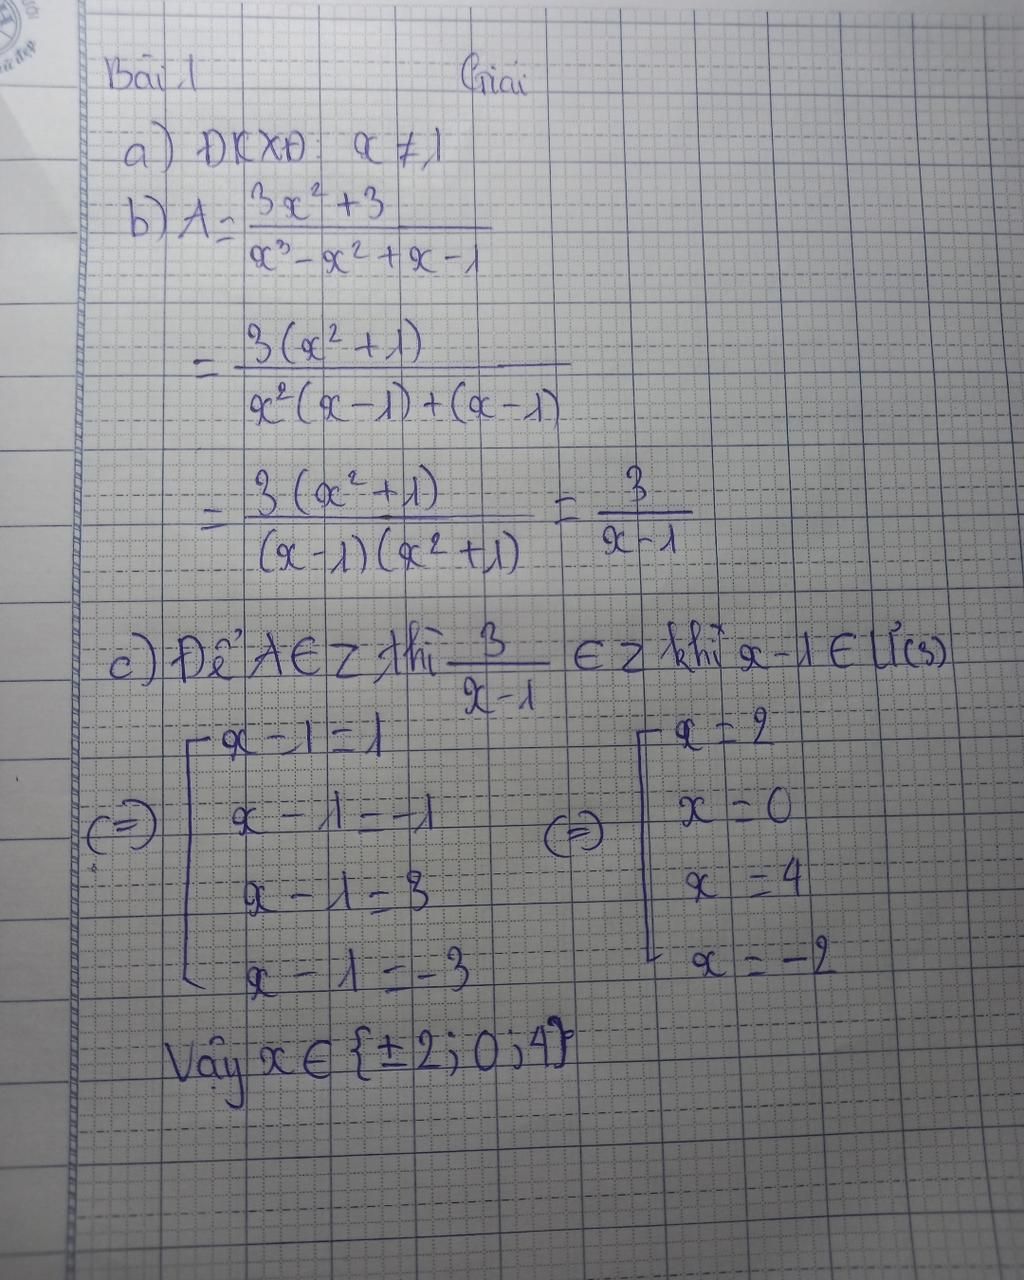 Bài 1 Giải
a) ĐKXĐ: x ≠ 1
b) A = (3x² + 3)/(x³ - x² + x - 1)
= (3(x² + 1))/(x²(x - 1) + (x - 1))
= (3(x² + 1))/((x - 1)(x² + 1)) = 3/(x - 1)
c) Để A ∈ Z thì 3/(x - 1) ∈ Z khi x - 1 ∈ Ư(3)
(=) [ x - 1 = 1 (=) [ x = 2
x - 1 = -1 x = 0
x - 1 = 3 x = 4
x - 1 = -3 x = -2
Vậy x ∈ {±2; 0; 4}